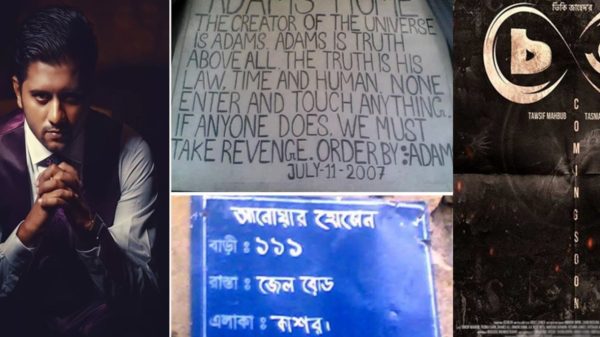 ADAMS HOME
THE CREATOR OF THE UNIVERSE
IS ADAMS. ADAMS IS TRUTH
ABOVE ALL. THE TRUTH IS HIS
LAW. TIME AND HUMAN. NONE
ENTER AND TOUCH ANYTHING.
IF ANYONE DOES. WE MUST
TAKE REVENGE. ORDER BY:ADAM
JULY-11-2007
আনোয়ার হোসেন
বাড়ী : ১১১
রাস্তা : জেল রোড
এলাকা :
ভিকি জাহেদ'র
TAWSIF MAHBUB
TASNI
COMING SOON